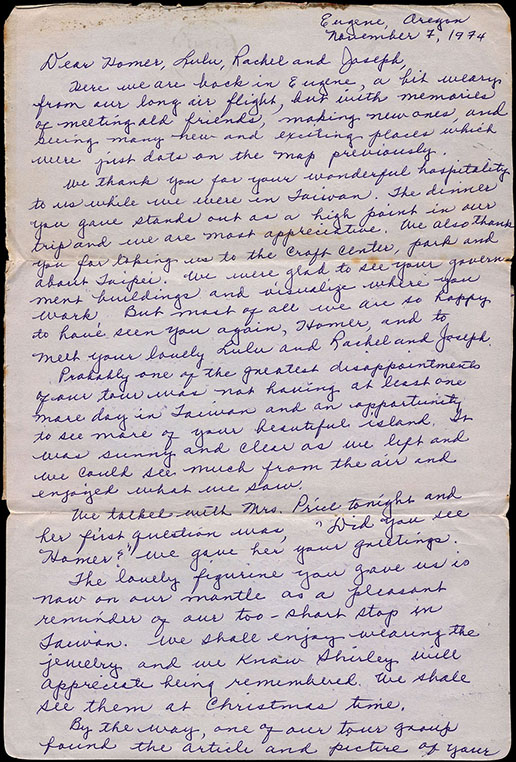 Eugene, Oregon
November 7, 1974
Dear Homer, Lulu, Rachel and Joseph,
Here we are back in Eugene, a bit weary
from our long air flight, but with memories
of meeting old friends, making new ones, and
seeing many new and exciting places which
were just dots on the map previously.
We thank you for your wonderful hospitality
to us while we were in Taiwan. The dinner
you gave stands out as a high point in our
trip and we are most appreciative. We also thank
you for taking us to the craft center, park and
about Taipei. We were glad to see your govern
ment buildings and visualize where you
work. But most of all we are so happy
to have seen you again, Homer, and to
meet your lovely Lulu and Rachel and Joseph.
Probably one of the greatest disappointments
of our tour was not having at least one
more day in Taiwan and an opportunity
to see more of your beautiful island. It
was sunny and clear as we left and
we could see much from the air and
enjoyed what we saw.
We talked with Mrs. Price tonight and
her first question was, "Did you see
Homer?" We gave her your greetings.
The lovely figurine you gave us is
now on our mantle as a pleasant
reminder of our too-short stop in
Taiwan. We shall enjoy wearing the
jewelry and we know Shirley will
appreciate being remembered. We shall
see them at Christmas time.
By the way, one of our tour group
found the article and picture of your